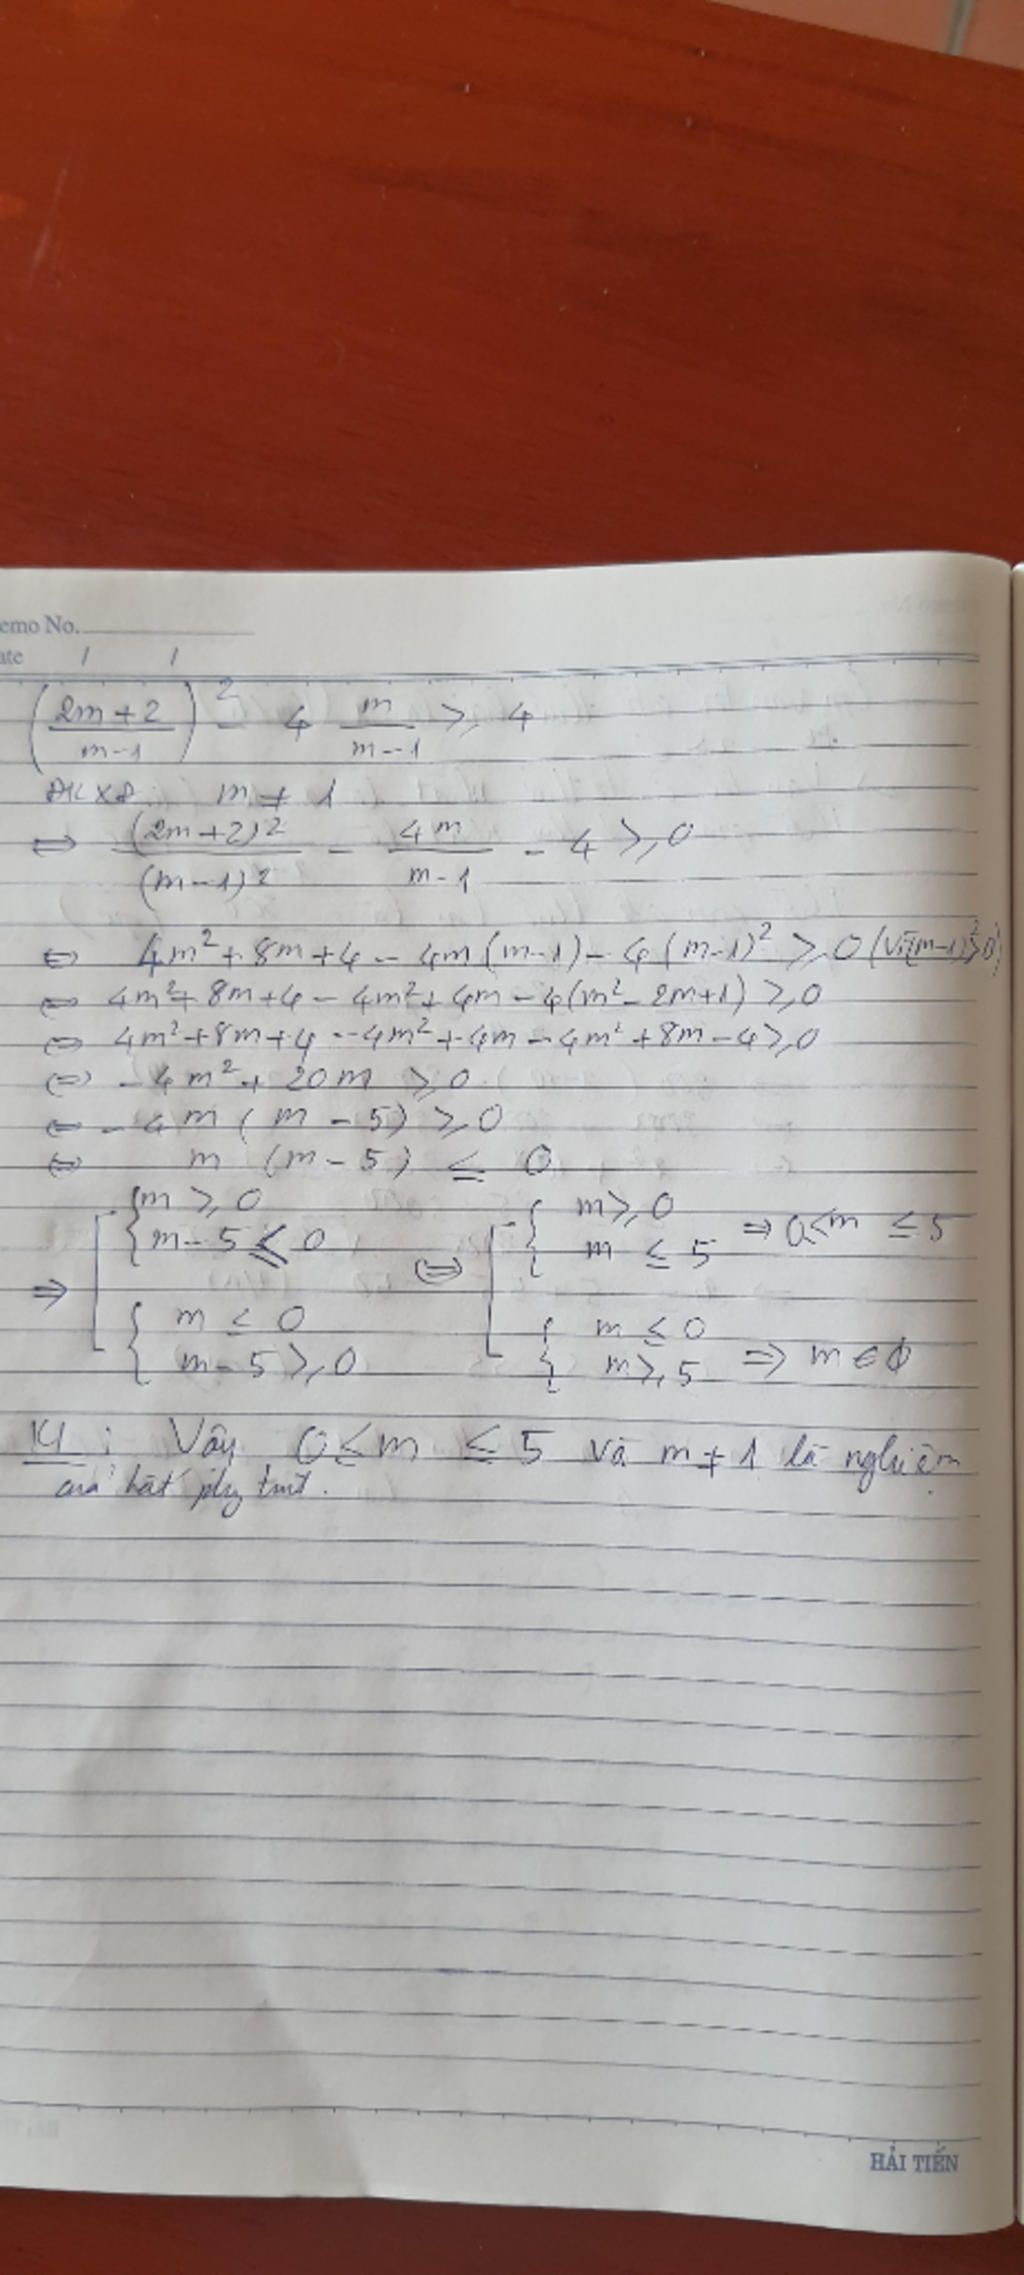 emo No.
ate / /
(2m+2 / m-1)² - 4 m/m-1 ≥ 4
ĐKXĐ m ≠ 1
⇔ (2m+2)²/(m-1)² - 4m/m-1 - 4 ≥ 0
⇔ 4m² + 8m + 4 - 4m(m-1) - 4(m-1)² ≥ 0 (vì (m-1)² > 0)
⇔ 4m² + 8m + 4 - 4m² + 4m - 4(m² - 2m + 1) ≥ 0
⇔ 4m² + 8m + 4 - 4m² + 4m - 4m² + 8m - 4 ≥ 0
⇔ -4m² + 20m ≥ 0
⇔ -4m(m - 5) ≥ 0
⇔ m(m - 5) ≤ 0
⇒ [ { m ≥ 0 ⇔ [ { m ≥ 0
m - 5 ≤ 0 m ≤ 5 ⇒ 0 ≤ m ≤ 5
{ m ≤ 0 { m ≤ 0
m - 5 ≥ 0 m ≥ 5 ⇒ m ∈ ∅
Kl : Vậy 0 ≤ m ≤ 5 và m ≠ 1 là nghiệm
của bất
HẢI TIẾN